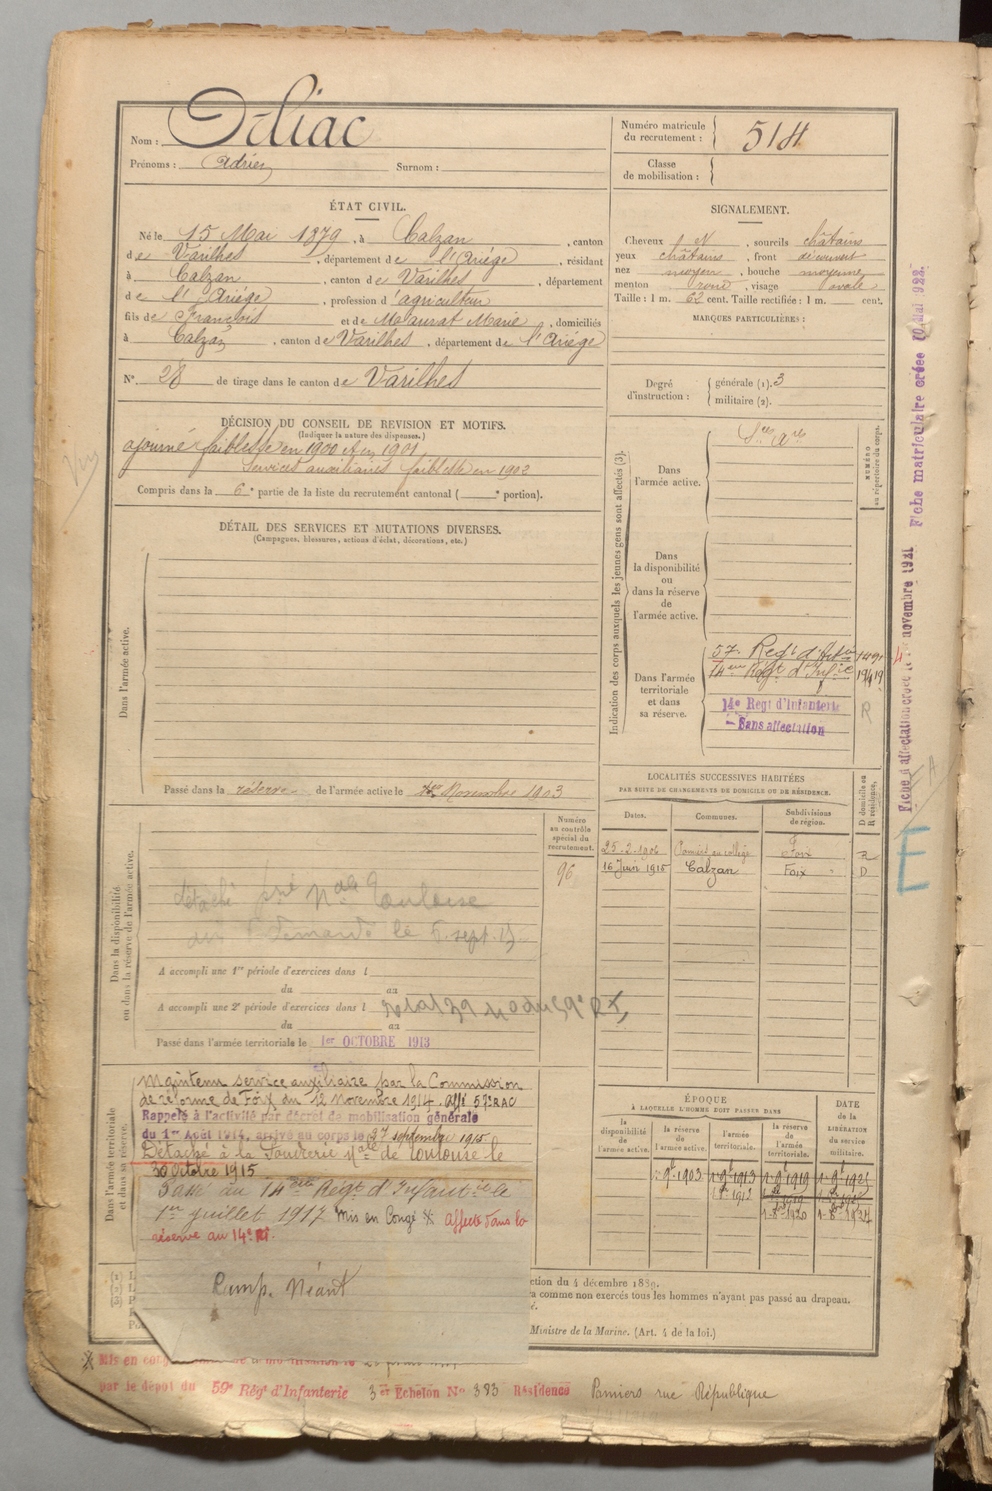 Nom : Idiac
Prénoms : Adrien Surnom :
Numéro matricule du recrutement : 514
Classe de mobilisation :
ÉTAT CIVIL.
Né le 15 Mai 1879, à Calzan, canton
de Varilhes, département de l'Ariège, résidant
à Calzan, canton de Varilhes, département
de l'Ariège, profession d'agriculteur
fils de François et de Maurat Marie, domiciliés
à Calzan, canton de Varilhes, département de l'Ariège
N° 28 de tirage dans le canton de Varilhes
SIGNALEMENT.
Cheveux, sourcils châtains
yeux châtains, front découvert
nez moyen, bouche moyenne
menton rond, visage ovale
Taille : 1 m. 62 cent. Taille rectifiée : 1 m. cent.
MARQUES PARTICULIÈRES :
Degré d'instruction : générale (1). 3
militaire (2).
DÉCISION DU CONSEIL DE REVISION ET MOTIFS.
(Indiquer la nature des dispenses.)
ajourné faiblesse en 1900 et en 1901
Services auxiliaires faiblesse en 1902
Compris dans la 6e partie de la liste du recrutement cantonal ( e portion).
DÉTAIL DES SERVICES ET MUTATIONS DIVERSES.
(Campagnes, blessures, actions d'éclat, décorations, etc.)
Dans l'armée active.
Passé dans la réserve de l'armée active le 1er Novembre 1903
Indication des corps auxquels les jeunes gens sont affectés (3).
Dans l'armée active.
Sces Ares
NUMÉRO au répertoire du corps.
Dans la disponibilité ou dans la réserve de l'armée active.
Dans l'armée territoriale et dans sa réserve.
57e Regt d'Artie
14eme Régt d'Infie
14e Regt d'Infanterie
Sans affectation
R
Fiche d'affectation créée le novembre 1921
Fiche matriculaire créée 10 Mai 1922
LOCALITÉS SUCCESSIVES HABITÉES
PAR SUITE DE CHANGEMENTS DE DOMICILE OU DE RÉSIDENCE.
Dates. Communes. Subdivisions de région. D domicile ou R résidence.
25.2.1906 Pamiers au collège Foix R
16 Juin 1915 Calzan Foix D
Dans la disponibilité ou dans la réserve de l'armée active.
Numéro au contrôle spécial du recrutement.
96
détaché Toulouse
demande le 5. sept. 15
A accompli une 1re période d'exercices dans l
du au
A accompli une 2e période d'exercices dans l
du au
Passé dans l'armée territoriale le 1er OCTOBRE 1913
Dans l'armée territoriale et dans sa réserve.
Maintenu service auxiliaire par la Commission
de réforme de Foix du 12 Novembre 1914. affé 57e RAC
Rappelé à l'activité par décret de mobilisation générale
du 1er Août 1914, arrivé au corps le 27 septembre 1915
Détaché à la Poudrerie Nale de Toulouse le
30 Octobre 1915
Passé au 14eme Régt d'Infanterie le
1er juillet 1917 Mis en Congé affecté dans la
réserve au 14e RI.
Camp. Néant
ÉPOQUE
À LAQUELLE L'HOMME DOIT PASSER DANS
la disponibilité de l'armée active. la réserve de l'armée active. l'armée territoriale. la réserve de l'armée territoriale.
DATE de la LIBÉRATION du service militaire.
ction du 4 décembre 1889.
a comme non exercés tous les hommes n'ayant pas passé au drapeau.
Ministre de la Marine. (Art. 4 de la loi.)
Mis en congé
par le dépot du 59e Régt d'Infanterie 3er Echelon No 383 Résidence Pamiers rue République